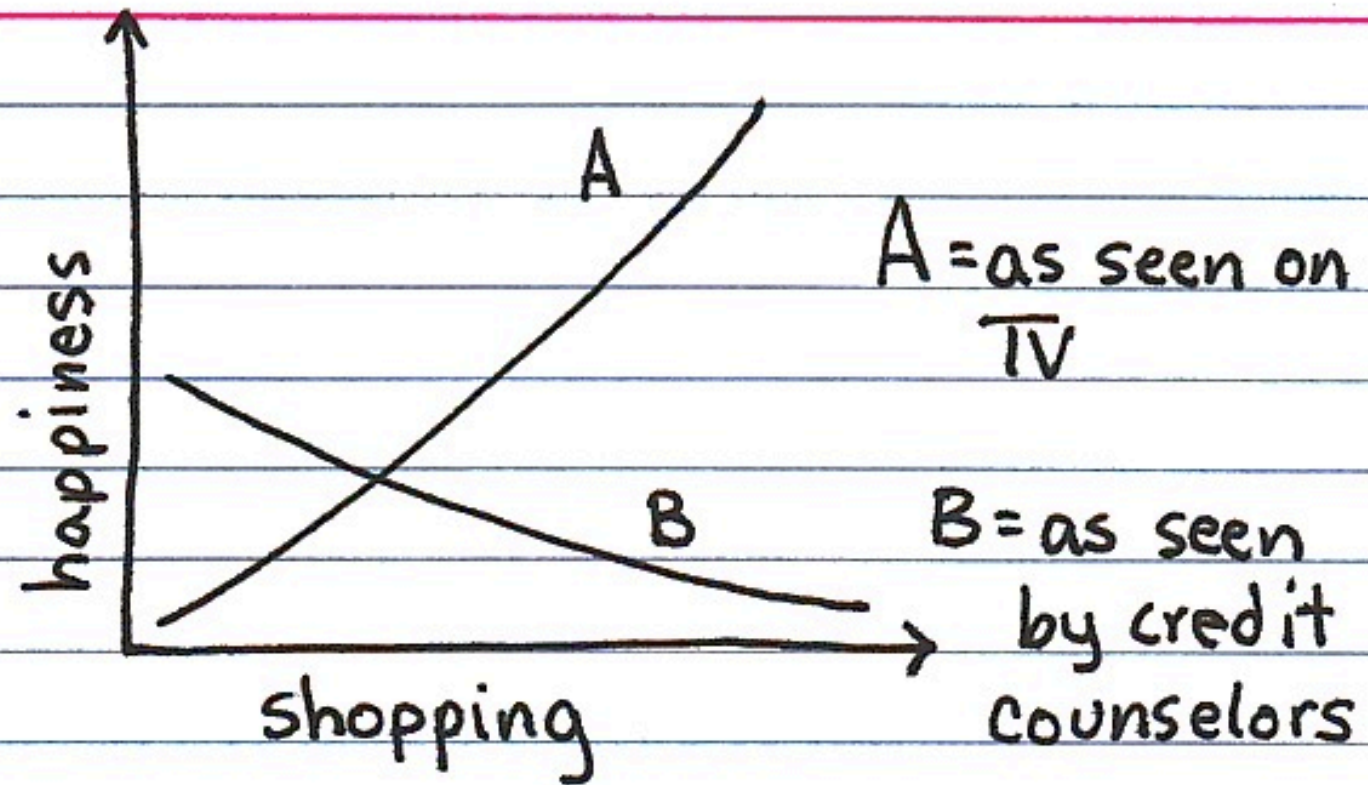 happiness
A
B
shopping
A = as seen on
TV
B = as seen
by credit
counselors